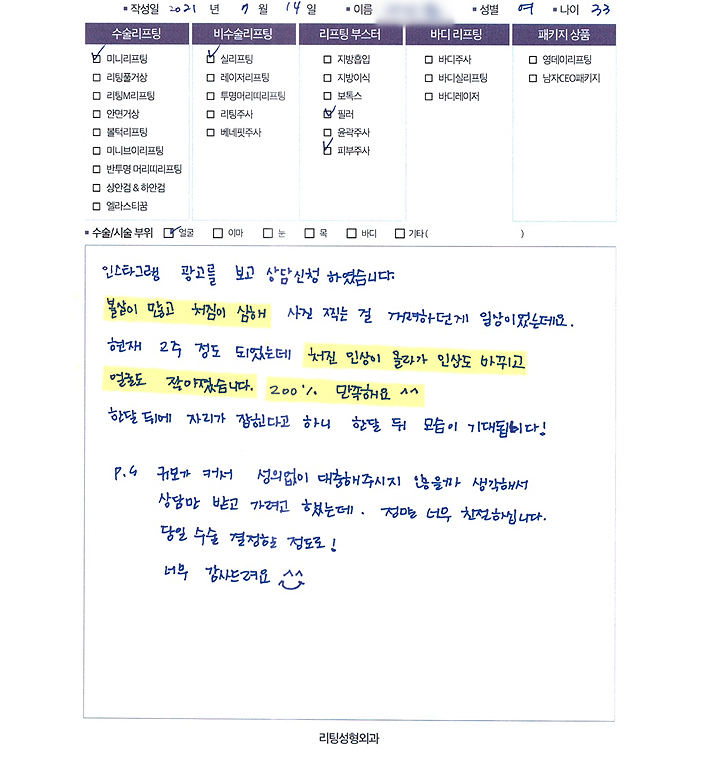 ▪ 작성일 2021 년 7 월 14 일 ▪ 이름 ▪ 성별 여 ▪ 나이 33
수술리프팅 비수술리프팅 리프팅 부스터 바디 리프팅 패키지 상품
☑ 미니리프팅 ☑ 실리프팅 □ 지방흡입 □ 바디주사 □ 영데이리프팅
□ 리팅풀거상 □ 레이저리프팅 □ 지방이식 □ 바디실리프팅 □ 남자CEO패키지
□ 리팅M리프팅 □ 투명머리띠리프팅 □ 보톡스 □ 바디레이저
□ 안면거상 □ 리팅주사 ☑ 필러
□ 볼턱리프팅 □ 베네핏주사 □ 윤곽주사
□ 미니브이리프팅 ☑ 피부주사
□ 반투명 머리띠리프팅
□ 상안검 & 하안검
□ 엘라스티꿈
▪ 수술/시술 부위 ☑ 얼굴 □ 이마 □ 눈 □ 목 □ 바디 □ 기타( )
인스타그램 광고를 보고 상담신청 하였습니다.
볼살이 많고 처짐이 심해 사진 찍는 걸 꺼려하던게 일상이었는데요.
현재 2주 정도 되었는데 처진 인상이 올라가 인상도 바뀌고
얼굴도 작아졌습니다. 200% 만족해요 ^^
한달 뒤에 자리가 잡힌다고 하니 한달 뒤 모습이 기대됩니다!
P.S 규모가 커서 성의없이 대충해주시지 않을까 생각해서
상담만 받고 가려고 했는데. 정말 너무 친절하십니다.
당일 수술 결정하는 정도로!
너무 감사드려요 ^^
리팅성형외과